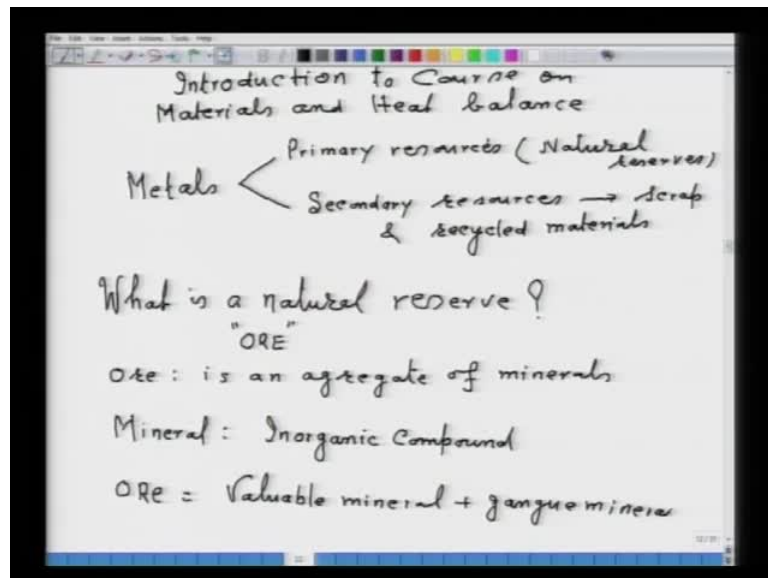 Introduction to Course on
Materials and Heat balance
Metals
Primary resources ( Natural
reserves)
Secondary resources → Scrap
& recycled materials
What is a natural reserve ?
"ORE"
Ore : is an agregate of minerals
Mineral : Inorganic Compound
ORe = Valuable mineral + gangue minera